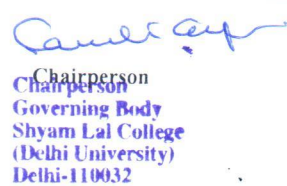 Chairperson
Chairperson
Governing Body
Shyam Lal College
(Delhi University)
Delhi-110032